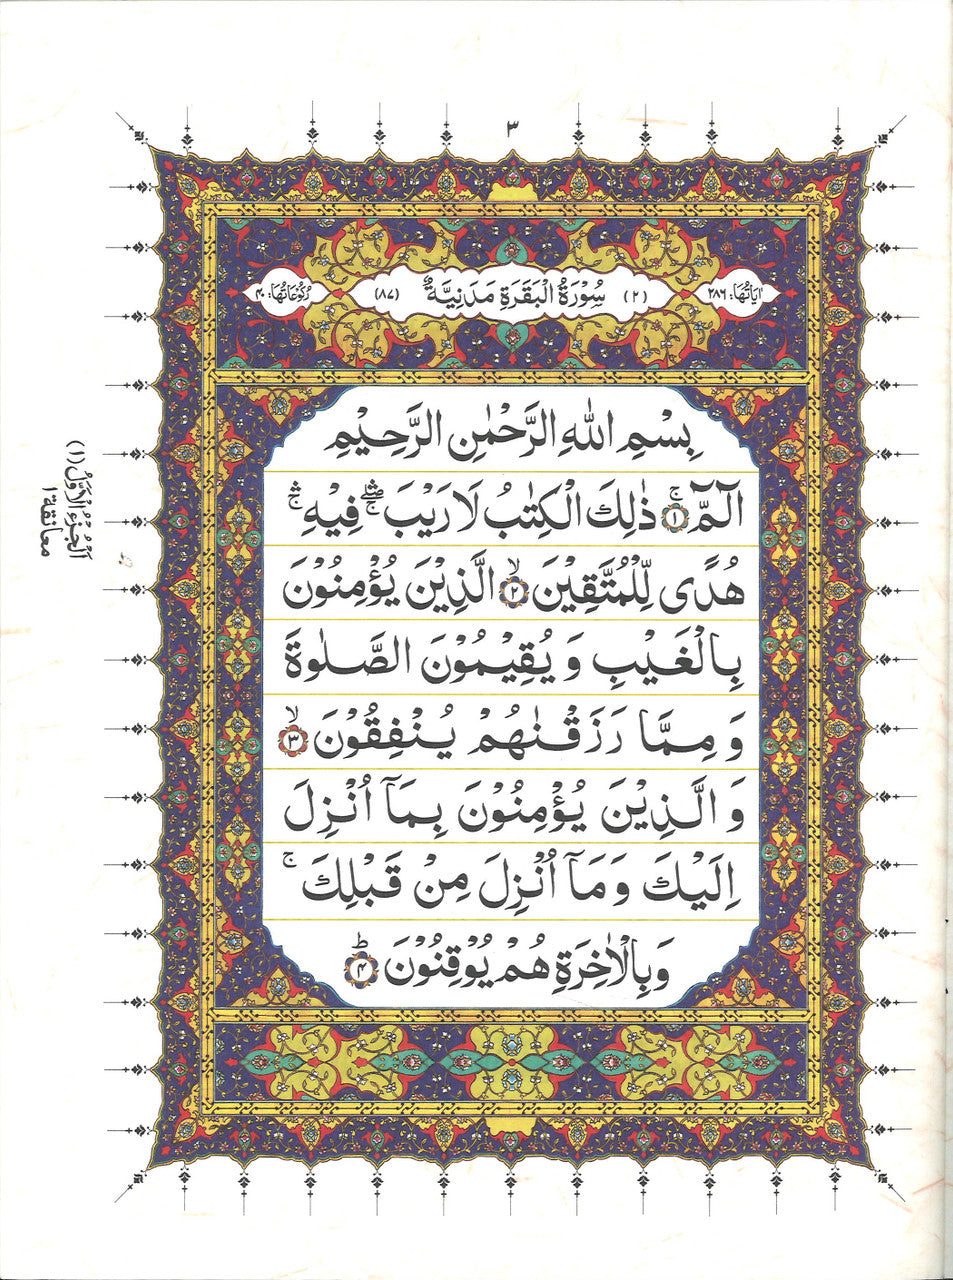 ٣
اٰيَاتُهَا: ٢٨٦ (٢) سُوْرَةُ الْبَقَرَةِ مَدَنِيَّةٌ (٨٧) رُكُوْعَاتُهَا: ٤٠
بِسْمِ اللهِ الرَّحْمٰنِ الرَّحِيْمِ
الٓمّٓ ۚ ١ ذٰلِكَ الْكِتٰبُ لَا رَيْبَ ۛۖۚ فِيْهِ ۛۚ
هُدًى لِّلْمُتَّقِيْنَ ۙ ٢ الَّذِيْنَ يُؤْمِنُوْنَ
بِالْغَيْبِ وَ يُقِيْمُوْنَ الصَّلٰوةَ
وَ مِمَّا رَزَقْنٰهُمْ يُنْفِقُوْنَ ۙ ٣
وَ الَّذِيْنَ يُؤْمِنُوْنَ بِمَاۤ اُنْزِلَ
اِلَيْكَ وَ مَاۤ اُنْزِلَ مِنْ قَبْلِكَ ۚ
وَ بِالْاٰخِرَةِ هُمْ يُوْقِنُوْنَ ؕ ٤
اَلْجُزْءُ الْاَوَّلُ (١)
معانقة ١